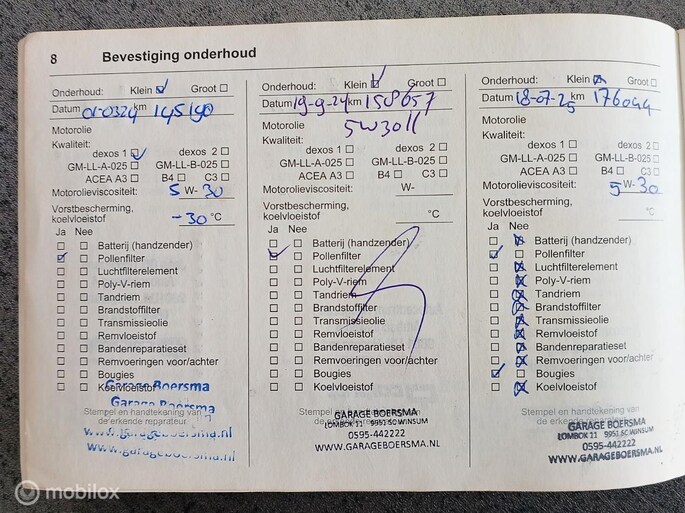 8 Bevestiging onderhoud
Onderhoud: Klein Groot
Datum 01-0324 km 145190
Motorolie
Kwaliteit:
dexos 1 dexos 2
GM-LL-A-025 GM-LL-B-025
ACEA A3 B4 C3
Motorolieviscositeit: 5 W- 30
Vorstbescherming,
koelvloeistof -30 °C
Ja Nee
Batterij (handzender)
Pollenfilter
Luchtfilterelement
Poly-V-riem
Tandriem
Brandstoffilter
Transmissieolie
Remvloeistof
Bandenreparatieset
Remvoeringen voor/achter
Bougies
Koelvloeistof
Garage Boersma
Garage Boersma
Stempel en handtekening van
de erkende reparateur
www.garageboersma.nl
www.garageboersma.nl
Onderhoud: Klein Groot
Datum 19-9-24 km 158657
Motorolie 5W30 ll
Kwaliteit:
dexos 1 dexos 2
GM-LL-A-025 GM-LL-B-025
ACEA A3 B4 C3
Motorolieviscositeit: W-
Vorstbescherming,
koelvloeistof °C
Ja Nee
Batterij (handzender)
Pollenfilter
Luchtfilterelement
Poly-V-riem
Tandriem
Brandstoffilter
Transmissieolie
Remvloeistof
Bandenreparatieset
Remvoeringen voor/achter
Bougies
Koelvloeistof
Stempel en handtekening van
de erkende reparateur
GARAGE BOERSMA
LOMBOK 11 9951 SC WINSUM
0595-442222
WWW.GARAGEBOERSMA.NL
Onderhoud: Klein Groot
Datum 18-07-25 km 176044
Motorolie
Kwaliteit:
dexos 1 dexos 2
GM-LL-A-025 GM-LL-B-025
ACEA A3 B4 C3
Motorolieviscositeit: 5 W- 30
Vorstbescherming,
koelvloeistof °C
Ja Nee
Batterij (handzender)
Pollenfilter
Luchtfilterelement
Poly-V-riem
Tandriem
Brandstoffilter
Transmissieolie
Remvloeistof
Bandenreparatieset
Remvoeringen voor/achter
Bougies
Koelvloeistof
Stempel en handtekening van
de erkende reparateur
GARAGE BOERSMA
LOMBOK 11 9951 SC WINSUM
0595-442222
WWW.GARAGEBOERSMA.NL
mobilox